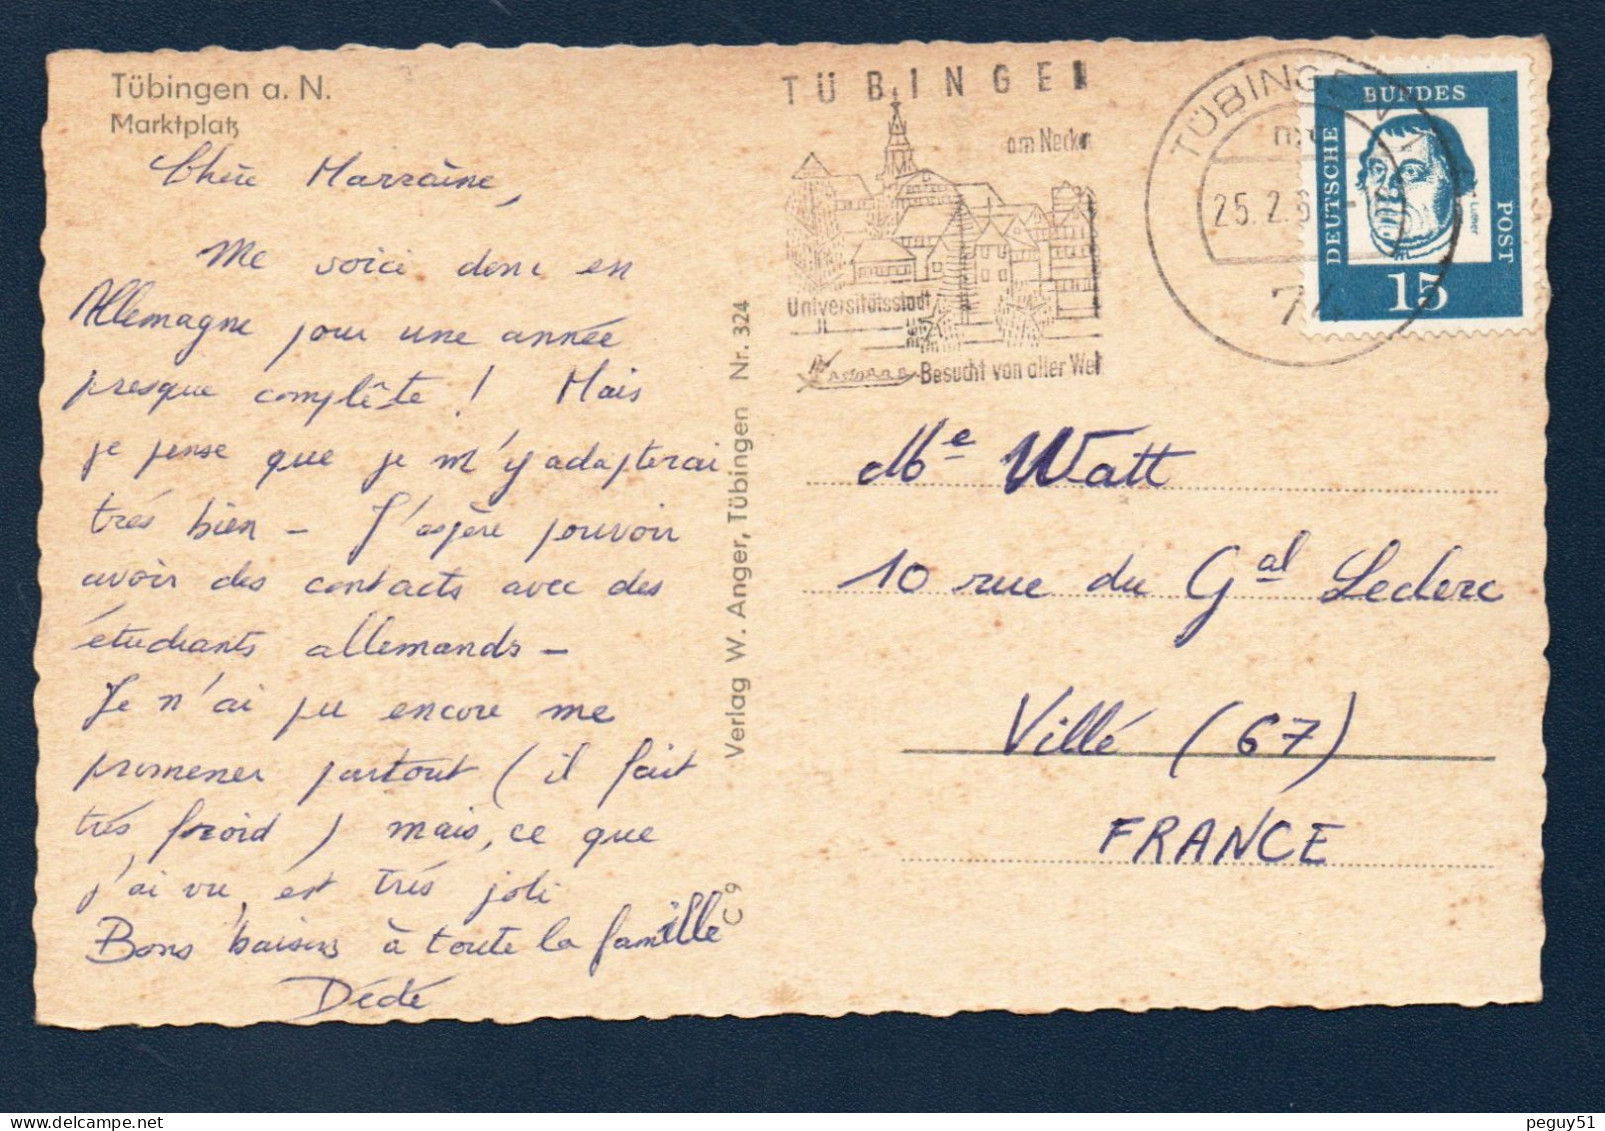 Tübingen a. N.
Marktplatz
Chère Marraine,
Me voici donc en
Allemagne pour une année
presque complète ! Mais
je pense que je m'y adapterai
très bien – J'espère pouvoir
avoir des contacts avec des
étudiants allemands –
Je n'ai pu encore me
promener partout (il fait
très froid) mais, ce que
j'ai vu, est très joli
Bons baisers à toute la famille
Dédé
Verlag W. Anger, Tübingen Nr. 324
C 9
TÜBINGEN
am Neckar
Universitätsstadt
Besucht von aller Welt
TÜBINGEN
25.2.6
74
DEUTSCHE
BUNDES
POST
Luther
15
Me Watt
10 rue du Gal Leclerc
Villé (67)
FRANCE
peguy51